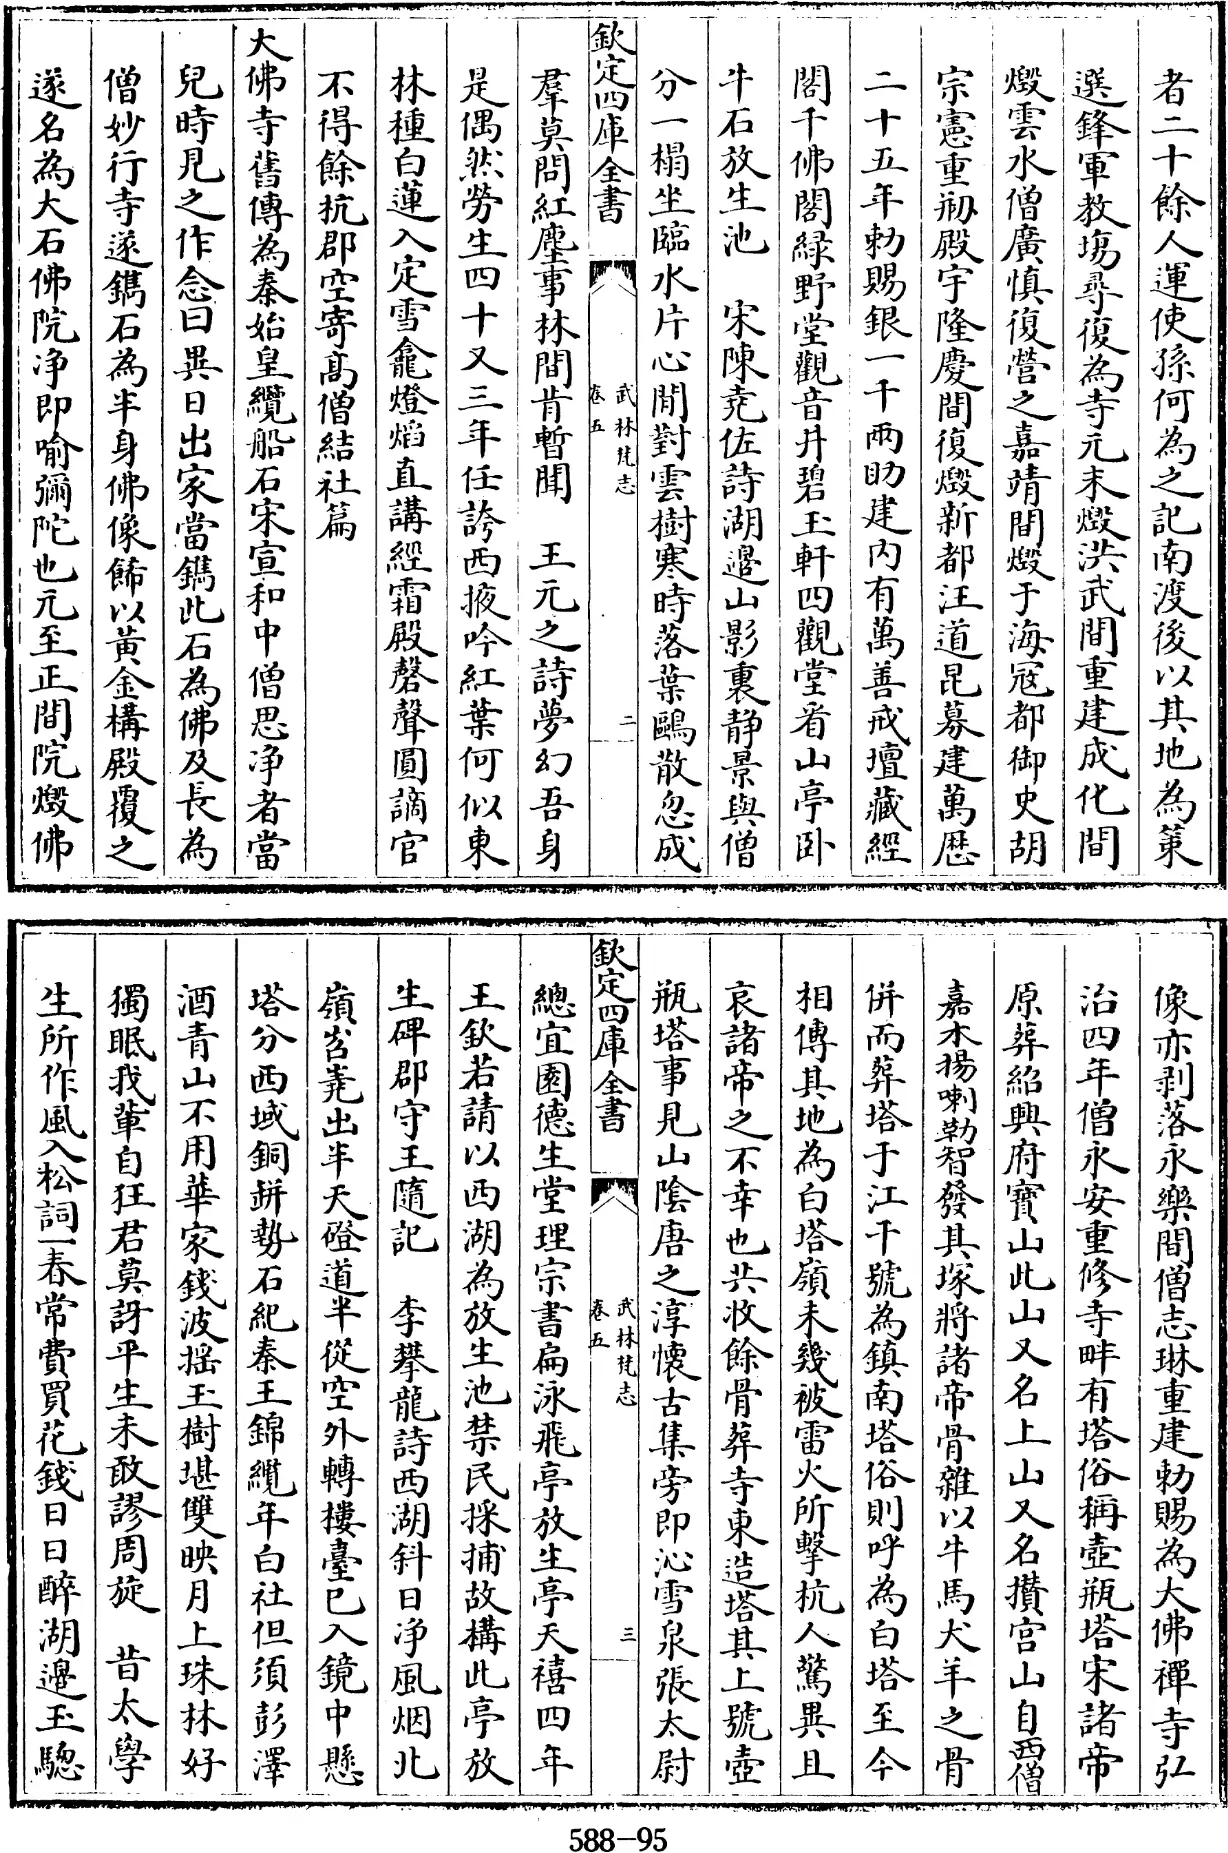 者二十餘人運使孫何為之記南渡後以其地為策
選鋒軍教場尋復為寺元末燬洪武間重建成化間
燬雲水僧廣慎復營之嘉靖間燬于海寇都御史胡
宗憲重剏殿宇隆慶間復燬新都汪道昆募建萬歴
二十五年勅賜銀一千兩助建内有萬善戒壇藏經
閣千佛閣緑野堂觀音井碧玉軒四觀堂看山亭卧
牛石放生池　宋陳堯佐詩湖邊山影裏静景與僧
分一榻坐臨水片心閒對雲樹寒時落葉鷗散忽成
欽定四庫全書
武林梵志
卷五
二
羣莫問紅塵事林間肯暫聞　王元之詩夢幻吾身
是偶然勞生四十又三年任誇西掖吟紅葉何似東
林種白蓮入定雪龕燈焰直講經霜殿磬聲圓謫官
不得餘杭郡空寄髙僧結社篇
大佛寺舊傳為秦始皇纜船石宋宣和中僧思净者當
兒時見之作念曰異日出家當鐫此石為佛及長為
僧妙行寺遂鐫石為半身佛像飾以黄金構殿覆之
遂名為大石佛院净即喻彌陀也元至正間院燬佛
像亦剥落永樂間僧志琳重建勅賜為大佛禪寺弘
治四年僧永安重修寺畔有塔俗稱壺瓶塔宋諸帝
原葬紹興府寳山此山又名上山又名攅宫山自西僧
嘉木揚喇勒智發其塚將諸帝骨雜以牛馬犬羊之骨
併而葬塔于江干號為鎮南塔俗則呼為白塔至今
相傳其地為白塔嶺未幾被雷火所擊杭人驚異且
哀諸帝之不幸也共收餘骨葬寺東造塔其上號壺
瓶塔事見山隂唐之淳懷古集旁即沁雪泉張太尉
欽定四庫全書
武林梵志
卷五
三
總宜園德生堂理宗書扁泳飛亭放生亭天禧四年
王欽若請以西湖為放生池禁民採捕故構此亭放
生碑郡守王隨記　李攀龍詩西湖斜日净風烟北
嶺岧嶤出半天磴道半從空外轉樓臺已入鏡中懸
塔分西域銅缾勢石紀秦王錦纜年白社但須彭澤
酒青山不用華家錢波揺玉樹堪雙映月上珠林好
獨眠我輩自狂君莫訝平生未敢謬周旋　昔太學
生所作風入松詞一春常費買花錢日日醉湖邊玉驄
588-95